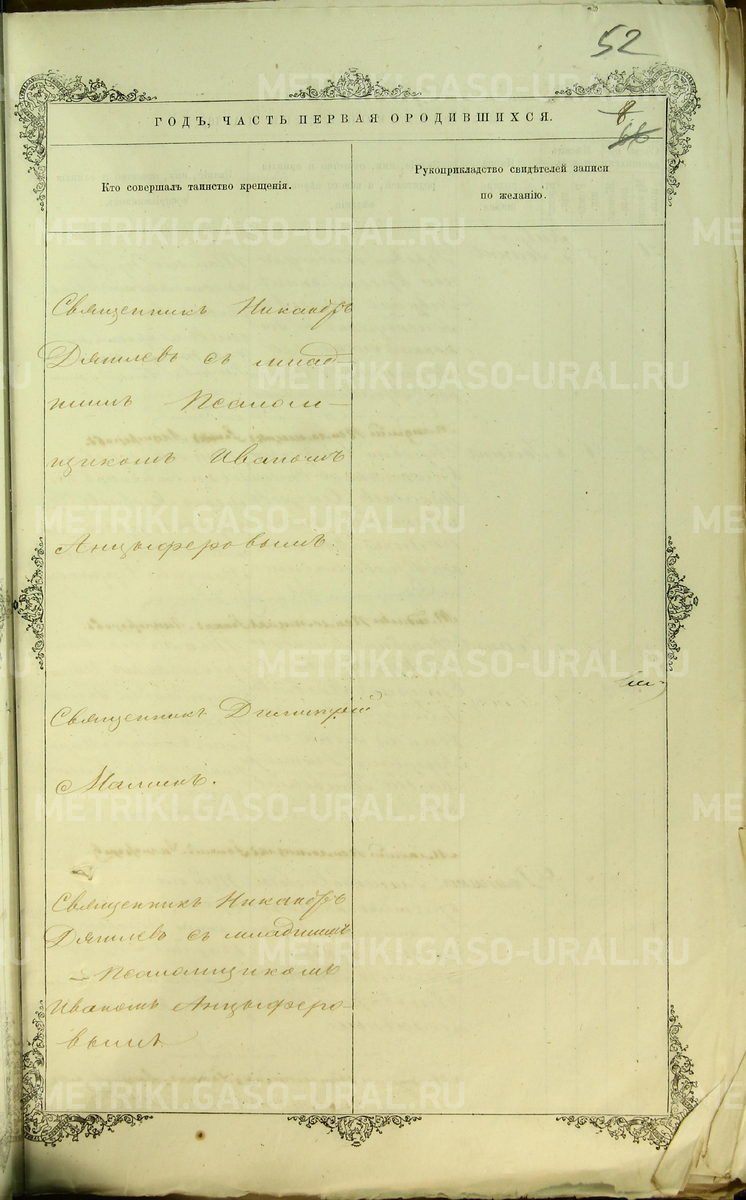 52
ГОДЪ, ЧАСТЬ ПЕРВАЯ ОРОДИВШИХСЯ.
8
66
Кто совершалъ таинство крещенія.
Рукоприкладство свидѣтелей записи
по желанію.
Священникъ Никандръ
Дягилевъ съ млад-
шимъ Псалом-
щикомъ Иваномъ
Анцыферовымъ.
Священникъ Димитрій
Священникъ Никандръ
Дягилевъ съ младшимъ
Псаломщикомъ
Иваномъ Анцыферо-
вымъ
METRIKI.GASO-URAL.RU